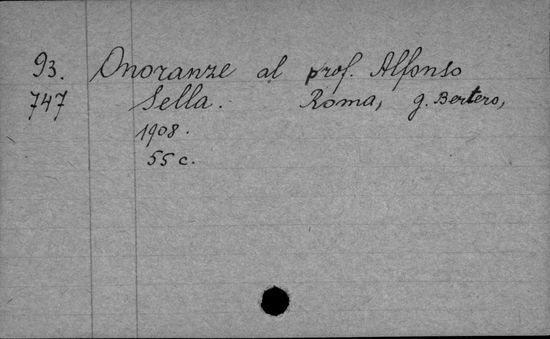 93. Onoranze al prof. Alfonso
747 Sella. Roma, G. Bertero,
1908.
55 c.